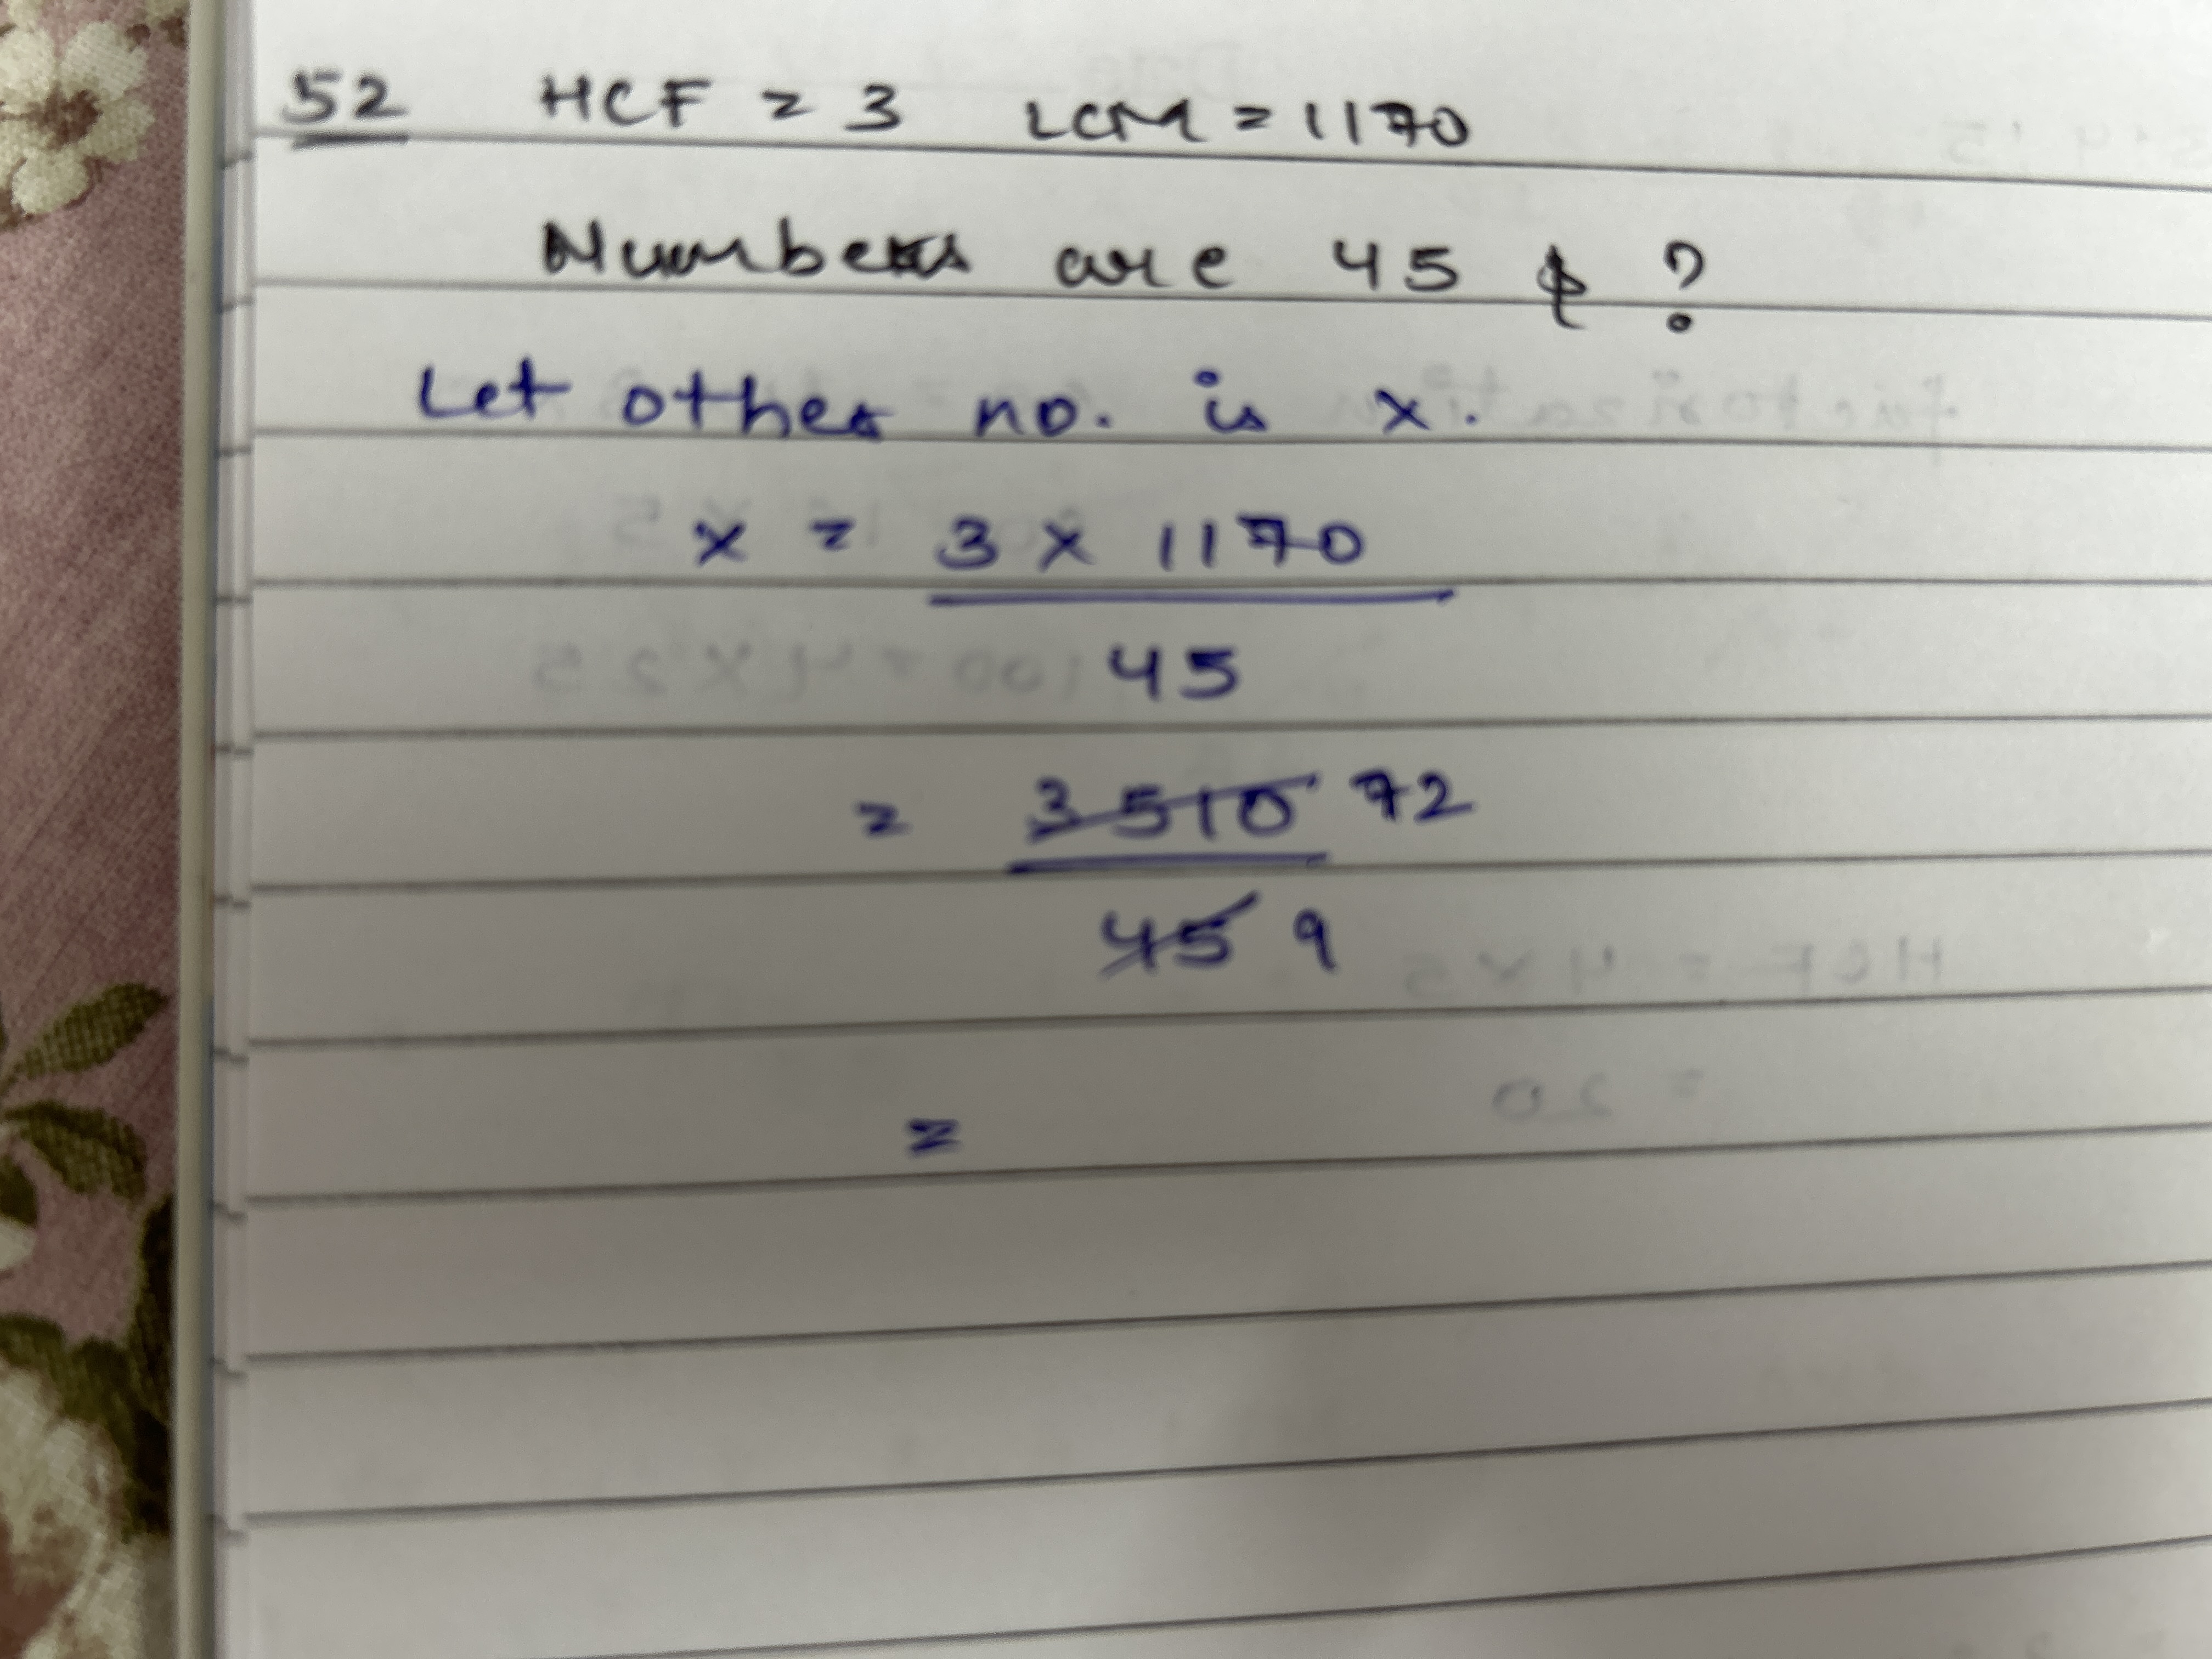 52 HCF = 3 LCM = 1170
Numbers are 45 & ?
Let other no. is x.
x = 3 x 1170
45
= 3510 72
45 9
=